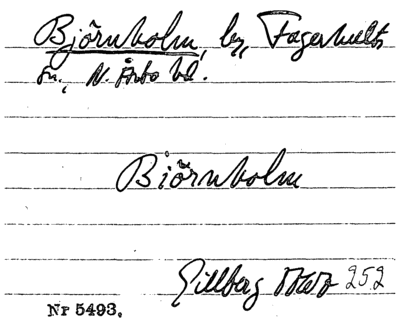 Björnholm, by, Fagerhults
sn., N. Åsbo hd.
Biörnholm
Gillberg 252
Nr 5493.